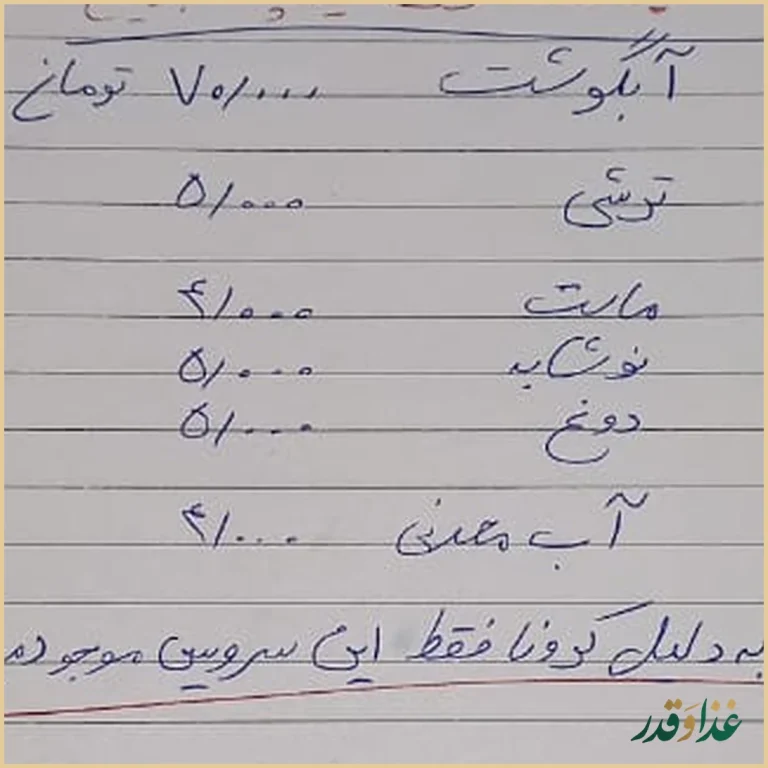 آبگوشت ۷۰/۰۰۰ تومان
ترشی ۵/۰۰۰
ماست ۴/۰۰۰
نوشابه ۵/۰۰۰
دوغ ۵/۰۰۰
آب معدنی ۴/۰۰۰
به دلیل کرونا فقط این سرویس موجوده
غذا و قدر